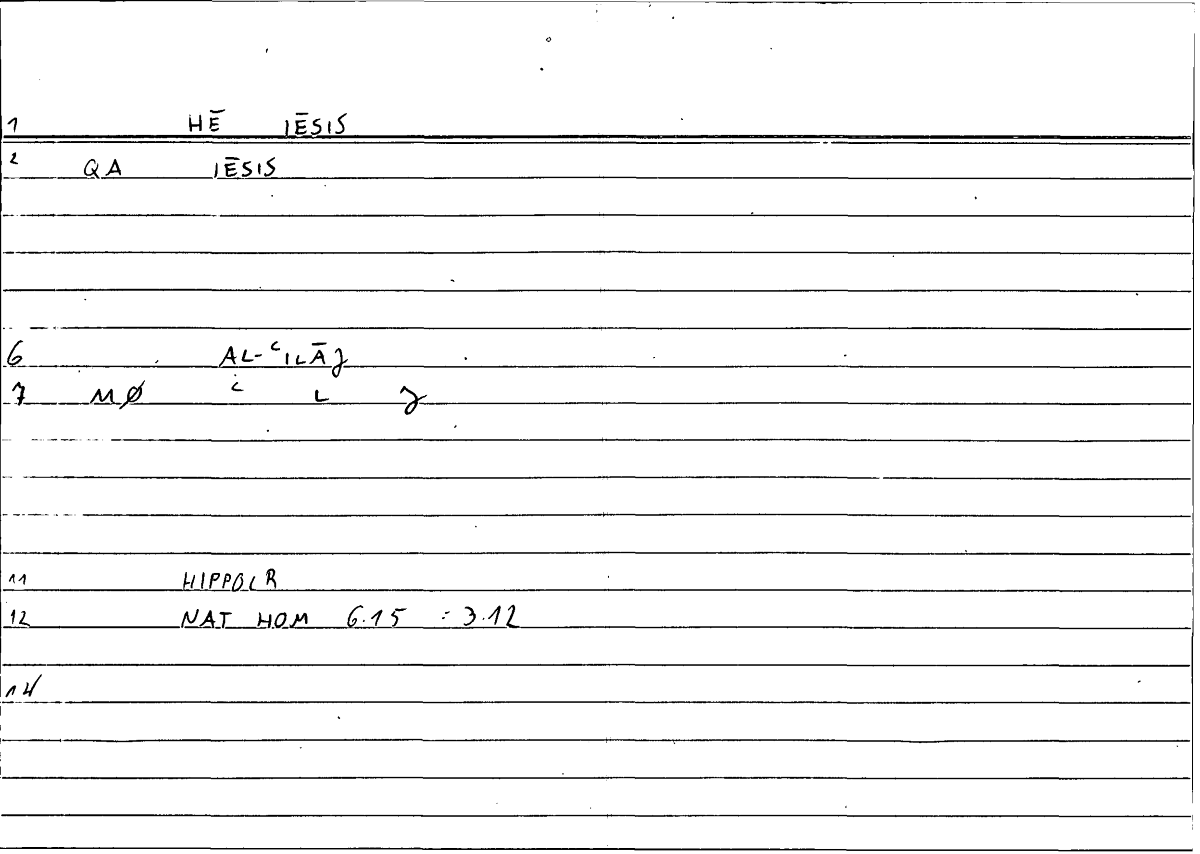 1 HĒ IĒSIS
2 QA IĒSIS
6 AL-ʿILĀJ
7 MØ ʿ L J
11 HIPPOCR
12 NAT HOM 6.15 = 3.12
14